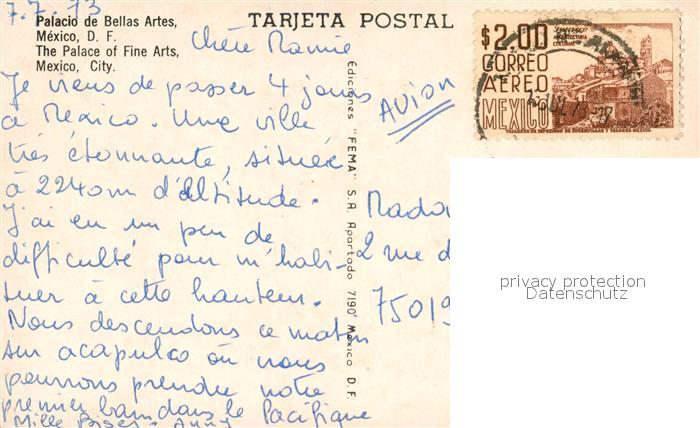 7.7.73
Palacio de Bellas Artes,
México, D. F.
The Palace of Fine Arts,
Mexico, City.
TARJETA POSTAL
Chère Mamie
Je viens de passer 4 jours
à Mexico. Une ville
très étonnante, située
à 2240m d'altitude.
J'ai eu un peu de
difficulté pour m'habi-
tuer à cette hauteur.
Nous descendons ce matin
sur acapulco où nous
pourrons prendre notre
premier bain dans le Pacifique
Mille Bises. Anny
Ediciones "FEMA" S.A. Apartado 7190 México D.F.
AVION
Mada
2 rue d
75019
$2.00
ARQUITECTURA
COLONIAL
CORREO
AEREO
MEXICO
TALLERES DE IMPRESION DE ESTAMPILLAS Y VALORES MEXICO.
privacy protection
Datenschutz